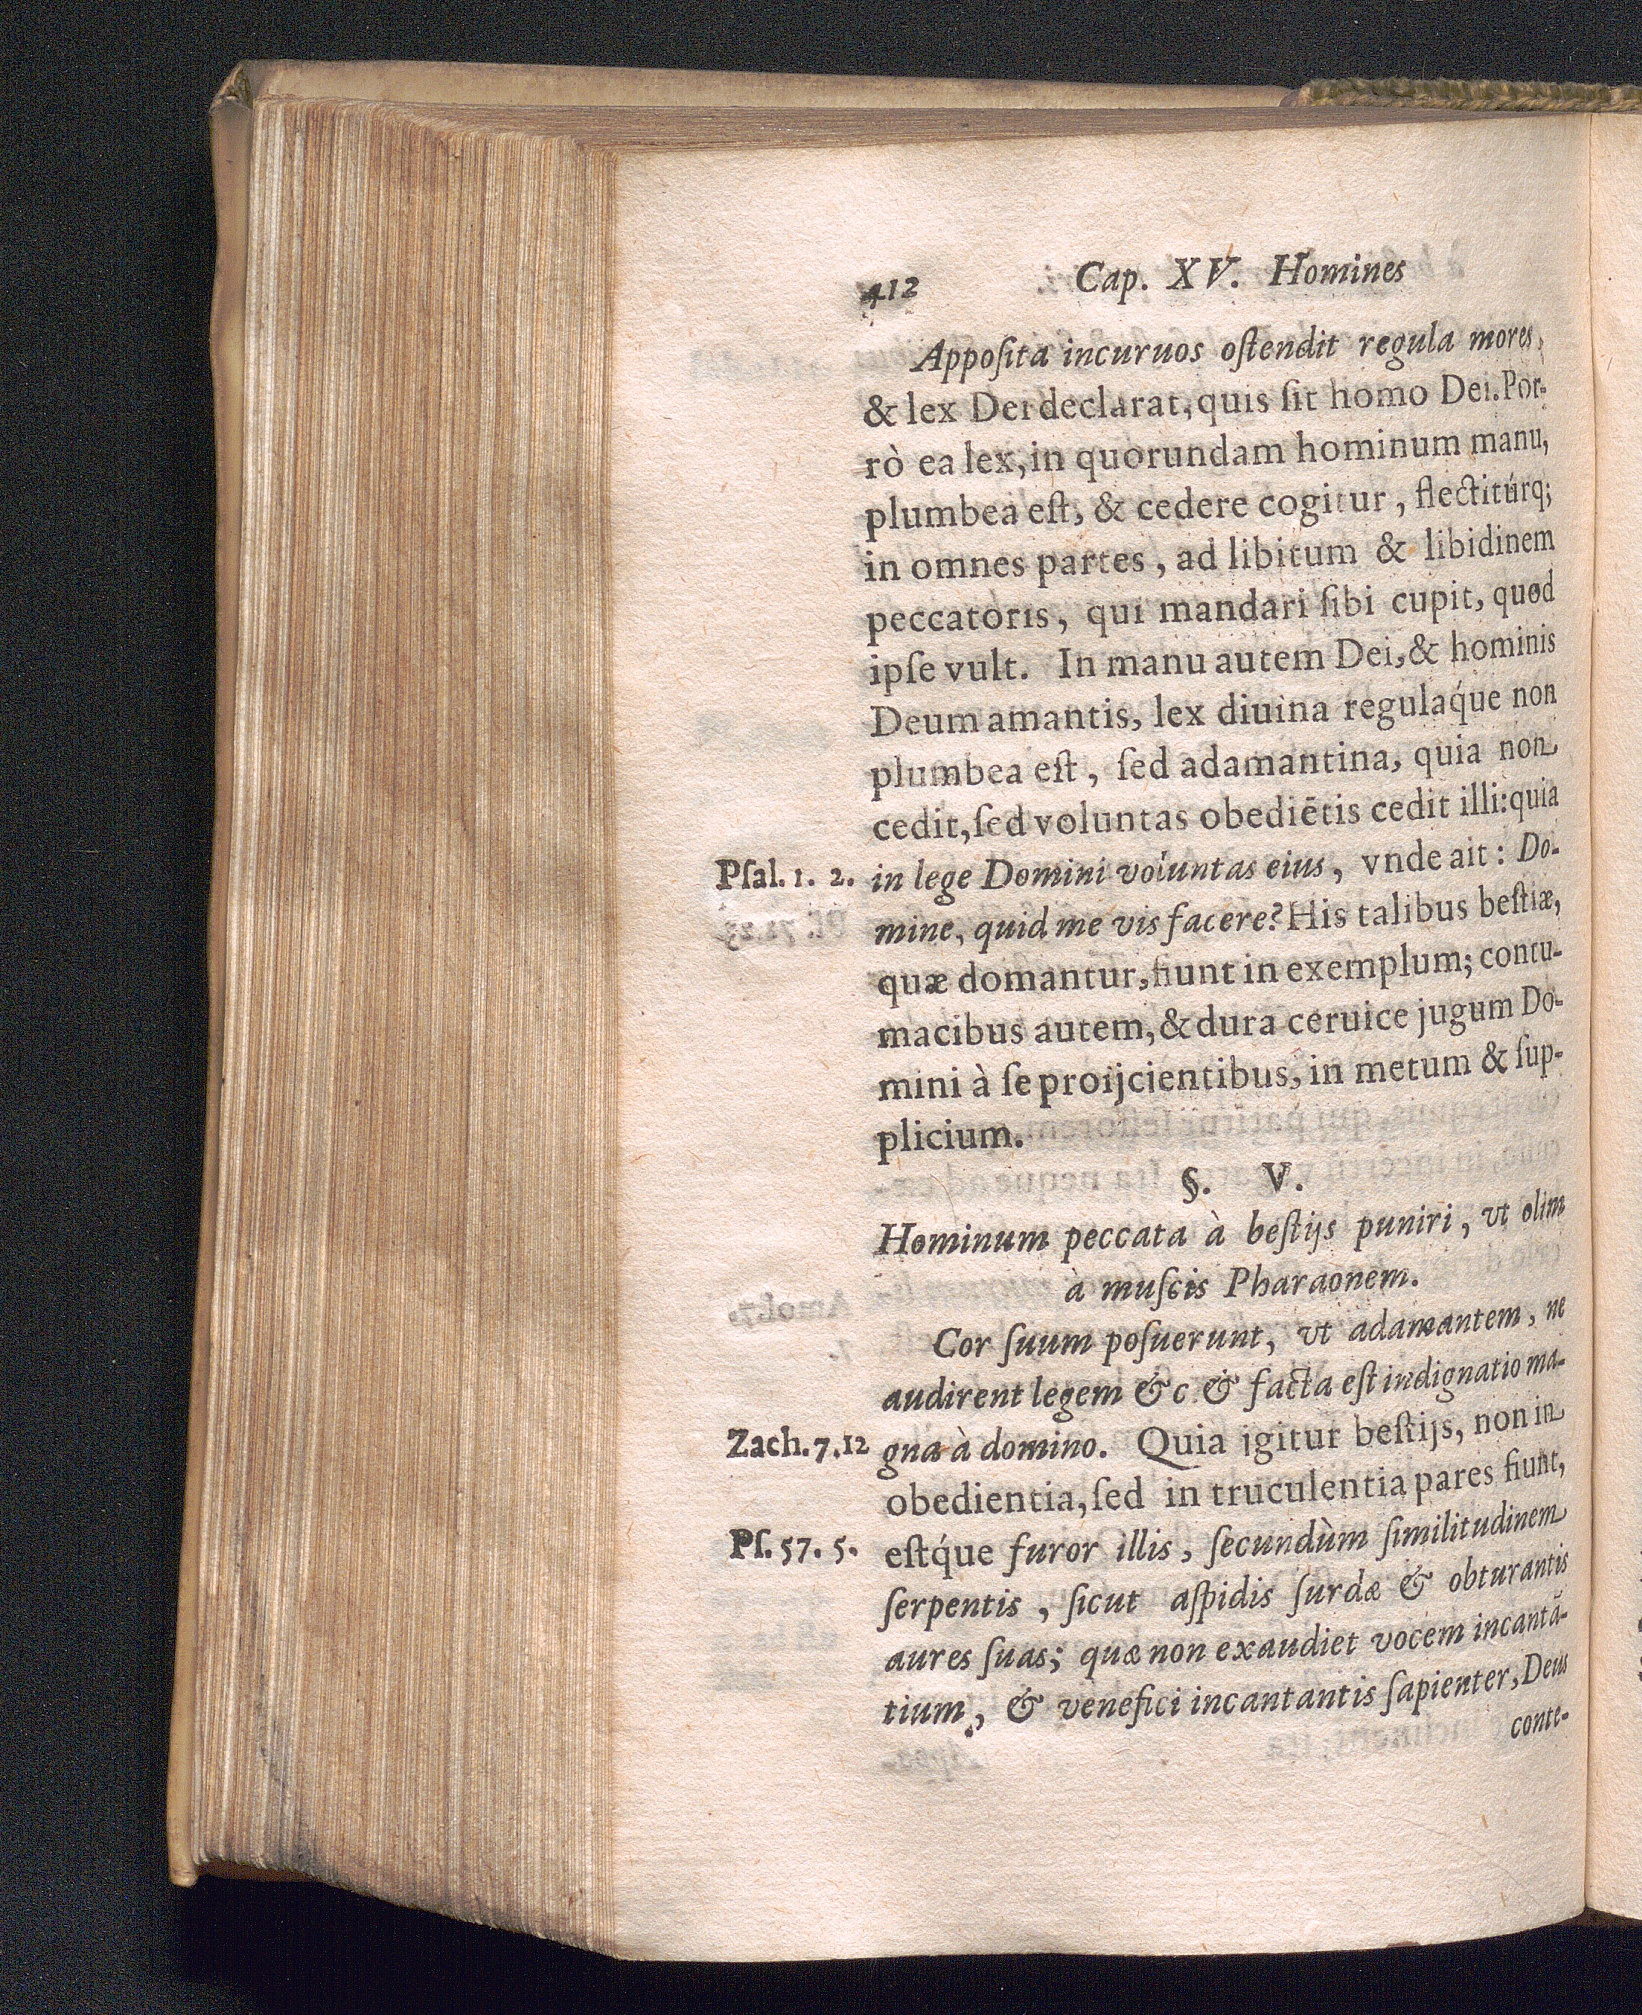 412 Cap. XV. Homines
Appoſita incuruos oſtendit regula mores,
& lex Dei declarat, quis ſit homo Dei. Por-
rò ea lex, in quorundam hominum manu,
plumbea eſt, & cedere cogitur, flectitúrq;
in omnes partes, ad libitum & libidinem
peccatoris, qui mandari ſibi cupit, quod
ipſe vult. In manu autem Dei, & hominis
Deum amantis, lex diuina regulaq́ue non
plumbea eſt, ſed adamantina, quia non
cedit, ſed voluntas obediētis cedit illi: quia
Pſal. 1. 2. in lege Domini voluntas eius, vnde ait: Do-
mine, quid me vis facere? His talibus beſtiæ,
quæ domantur, fiunt in exemplum; contu-
macibus autem, & dura ceruice jugum Do-
mini à ſe proijcientibus, in metum & ſup-
plicium.
§. V.
Hominum peccata à beſtijs puniri, vt olim
à muſcis Pharaonem.
Cor ſuum poſuerunt, vt adamantem, ne
audirent legem &c. & facta eſt indignatio ma-
Zach. 7. 12 gna à domino. Quia igitur beſtijs, non in
obedientia, ſed in truculentia pares fiunt,
Pſ. 57. 5. eſtq́ue furor illis, ſecundùm ſimilitudinem
ſerpentis, ſicut aſpidis ſurdæ & obturantis
aures ſuas; quæ non exaudiet vocem incantā-
tium, & venefici incantantis ſapienter, Deus
conte-